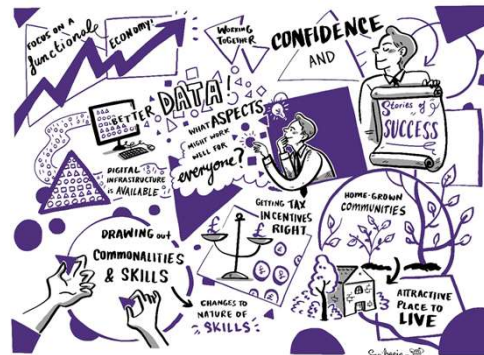 FOCUS ON A
functional
ECONOMY!
WORKING
TOGETHER
CONFIDENCE
AND
Stories of
SUCCESS
BETTER
DATA!
WHAT ASPECTS
MIGHT WORK
WELL FOR
everyone?
DIGITAL
INFRASTRUCTURE
is AVAILABLE
GETTING TAX
INCENTIVES
RIGHT
£
£
HOME-GROWN
COMMUNITIES
DRAWING out
COMMONALITIES
& SKILLS
CHANGES TO
NATURE OF
SKILLS
ATTRACTIVE
PLACE TO
LIVE